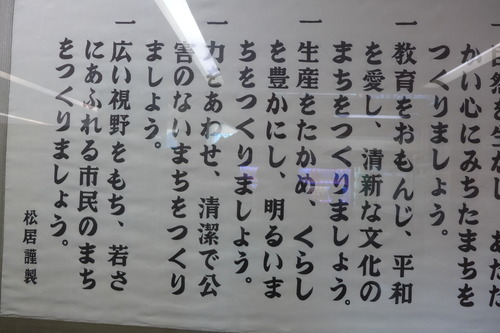 かい心にみちたまちを
つくりましょう。
一 教育をおもんじ、平和
を愛し、清新な文化の
まちをつくりましょう。
一 生産をたかめ、くらし
を豊かにし、明るいま
ちをつくりましょう。
一 力をあわせ、清潔で公
害のないまちをつくり
ましょう。
一 広い視野をもち、若さ
にあふれる市民のまち
をつくりましょう。
松居謹製